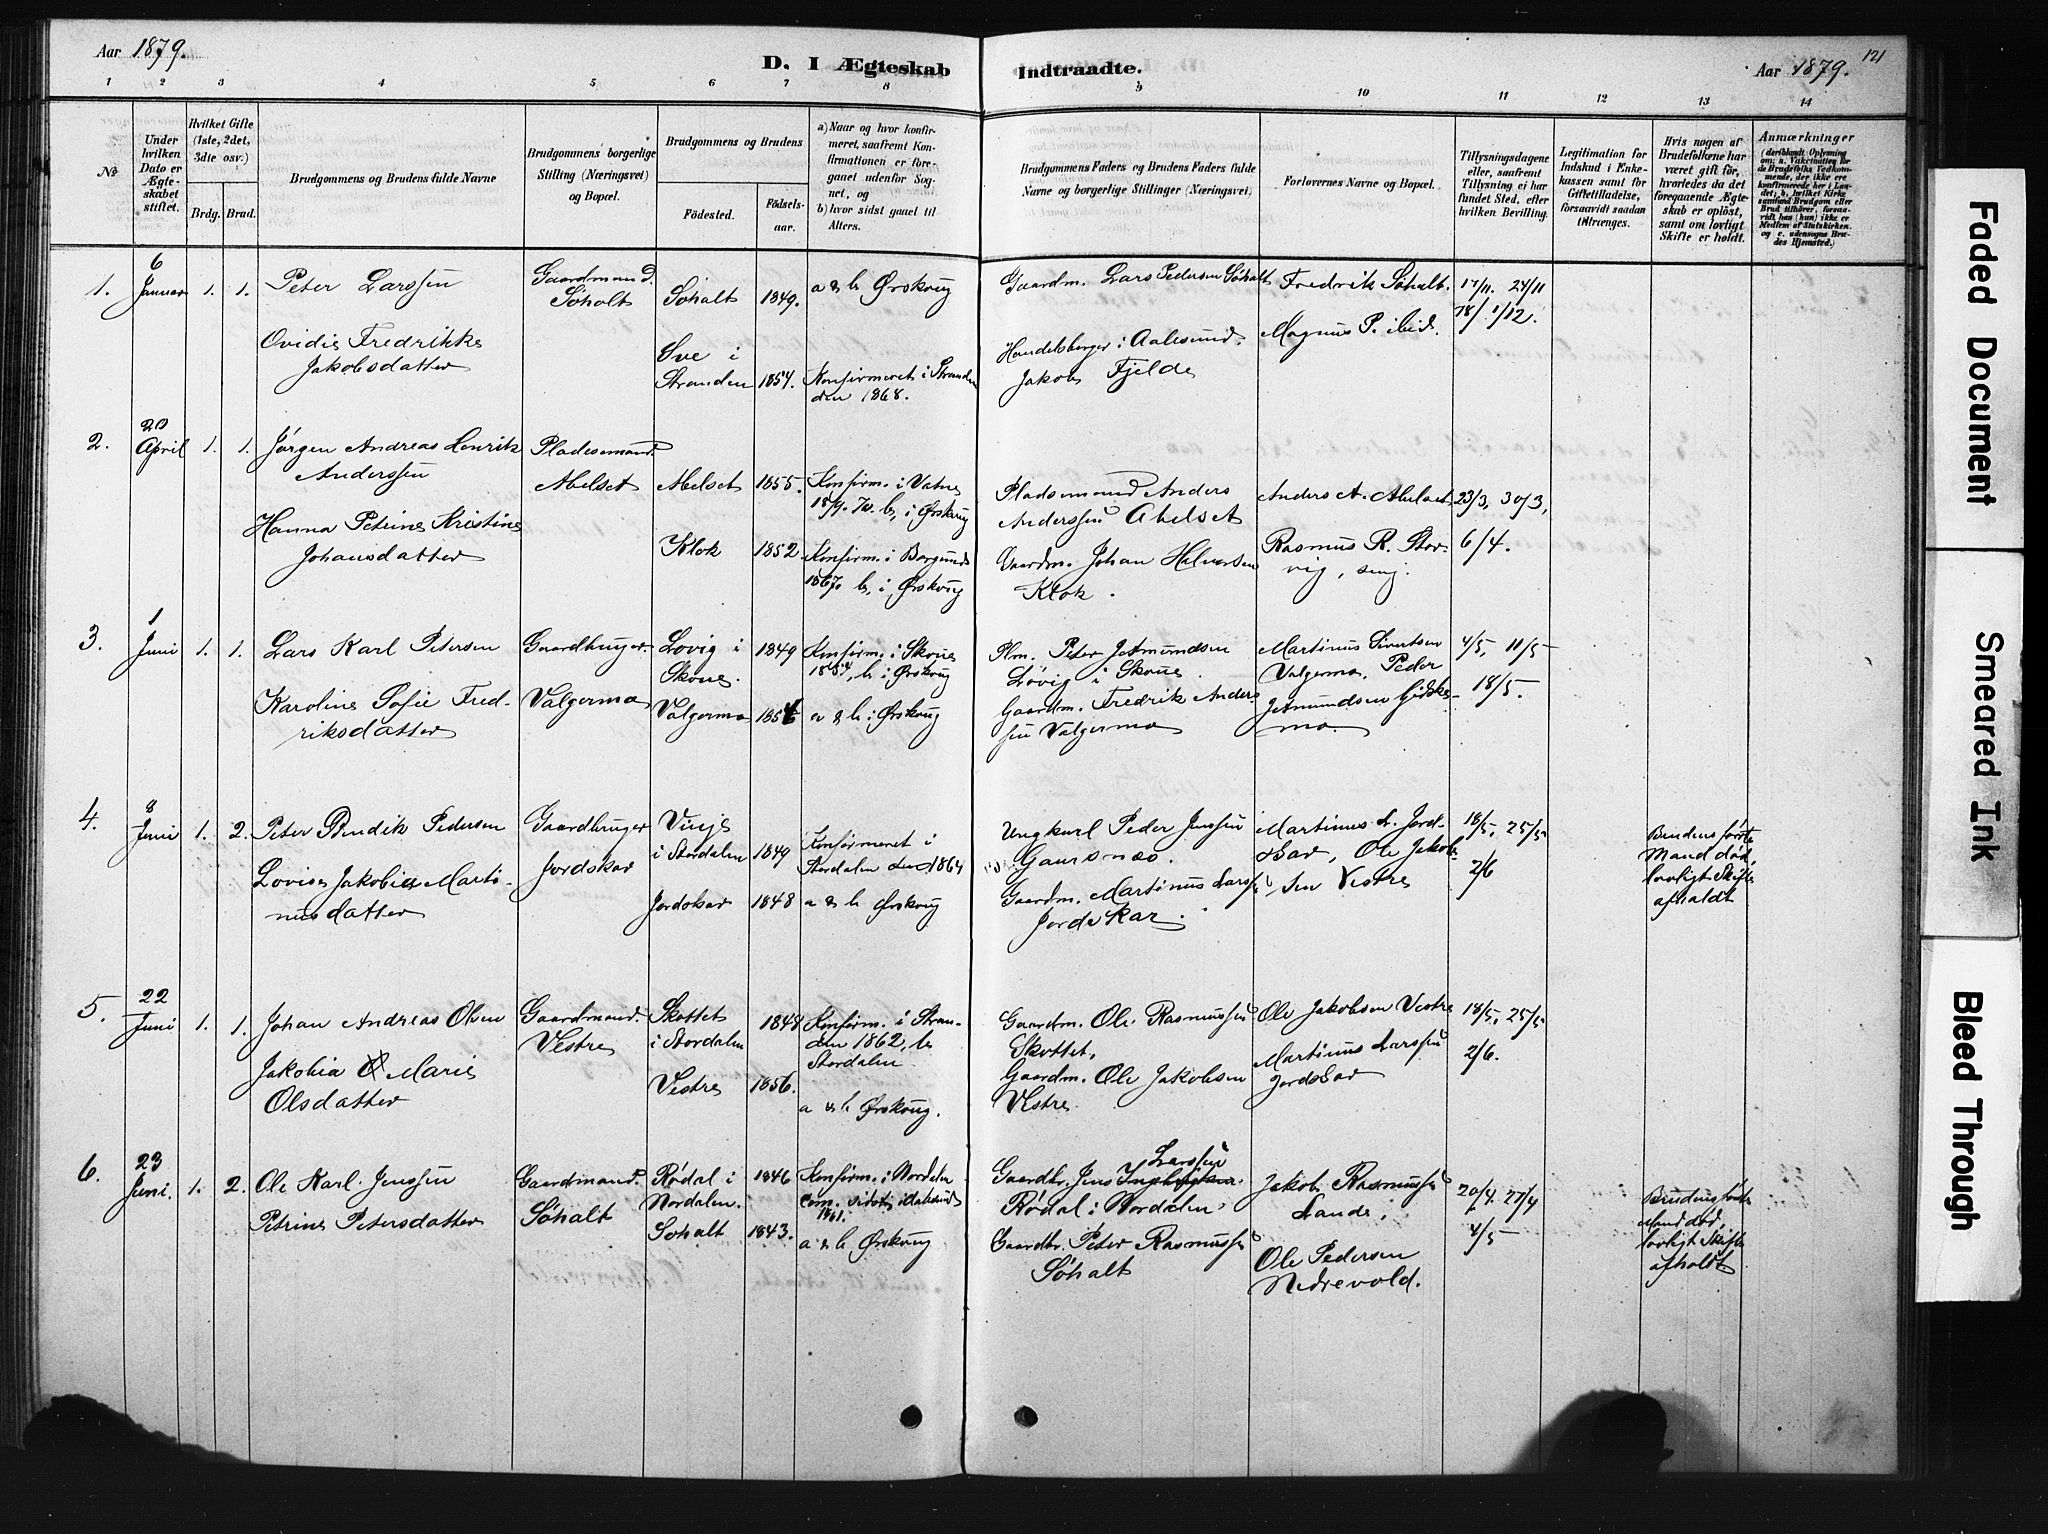 Aar 1879.
D. I Ægteskab Indtraadte.
Aar 1879.
121
1 2 3 4 5 6 7 8 9 10 11 12 13 14
No
Under hvilken Dato er Ægteskabet stiftet.
Hvilket Gifte (1ste, 2det, 3die osv.)
Brdg. Brud.
Brudgommens og Brudens fulde Navne
Brudgommens borgerlige Stilling (Næringsvei) og Bopæl.
Brudgommens og Brudens
Fødested.
Fødselsaar.
a) Naar og hvor konfirmeret, saafremt Konfirmationen er foregaaet udenfor Sognet, og
b) hvor sidst gaaet til Alters.
Brudgommens Faders og Brudens Faders fulde Navne og borgerlige Stillinger (Næringsvei)
Forlovernes Navne og Bopæl.
Tillysningsdagene eller, saafremt Tillysning ei har fundet Sted, efter hvilken Bevilling.
Legitimation for Indskud i Enkekassen samt for Giftetilladelse, forsaavidt saadan tiltrænges.
Hvis nogen af Brudefolkene har været gift før, hvorledes da det foregaaende Ægteskab er opløst, samt om lovligt Skifte er holdt.
Anmærkninger
1. 6 Januar 1. 1. Peter Larssen
Gaardmand. Søholt
Søholt 1849. a & b Ørskoug
Gaardm. Lars Pedersen Søholt
Fredrik Søholt.
17/11. 24/11
78/ 1/12.
Ovidie Fredrikke
Jakobsdatter
Sve i
Stranden 1854.
Konfirmeret i Stranden 1868.
Handelsborger i Aalesund.
Jakob Fjelde
Magnus P. ibid.
2. 20 April 1. 1. Jørgen Andreas Henrik
Anderssen
Pladesmand.
Abelset
Abelset 1855.
Konfirm. i Vatne
b, i Ørskoug
Pladsemand Anders
Anderssen Abelset
Anders A. Abelset
23/3, 30/3,
Hanna Petrine Kristine
Johansdatter
Klok 1852
Konfirm. i Borgund
1867. b, i Ørskoug
Gaardm. Johan Halvorsen
Klok.
Rasmus R. Storvig, smj.
6/4.
3. 1 Juni 1. 1. Lars Karl Petersen
Gaardbruger.
Løvig i
Skoue. 1849
Konfirm. i Skoue
b i Ørskoug
Plm. Peter Jetmundsen
Løvig i Skoue
Martinus Sivertsen
Valgermo, Peder
Jetmundsen Gidskemo.
4/5, 11/5
18/5.
Karoline Sofie Fredriksdatter
Valgermo
Valgermo
a & b i Ørskoug
Gaardm. Fredrik Anderssen Valgermo
4. 8 Juni 1. 2. Peter Bendik Pedersen
Gaardbruger
Jordskar
Vinje
i Stordalen 1849
Konfirmeret i
Stordalen den 1864
Ungkarl Peder Jenssen
Gausnæs.
Martinus L. Jordskar, Ole Jakobsen Vestre
18/5, 25/5
2/6
Brudens første
Mand død,
lovligt Skifte
afholdt
Lovise Jakobia Martinusdatter
Jordskar 1848 a & b Ørskoug
Gaardm. Martinus Larssen
Jordskar.
5. 22 Juni 1. 1. Johan Andreas Olsen
Gaardmand.
Vestre
Skottet
i Stordalen 1848
Konfirm. i Stranden 1862, b
Stordalen
Gaardm. Ole Rasmussen
Skottet,
Ole Jakobsen Vestre
18/5, 25/5
Jakobia Marie
Olsdatter
Vestre 1856.
a & b Ørskoug.
Gaardm. Ole Jakobsen
Vestre
Martinus Larssen
Jordskar
2/6.
6. 23 Juni. 1. 2. Ole Karl Jenssen
Gaardmand.
Søholt
Rødal i
Nordalen. 1846
Konfirm. i Nordalen
com. sidst i Aalesund
1861.
Gaardbr. Jens Larssen
Rødal i Nordalen
Jakob Rasmussen
Lande,
20/4. 27/4
Brudens første
Mand død,
lovligt Skifte
afholdt
Petrine Petersdatter
Søholt 1843.
a & b Ørskoug
Gaardbr. Peter Rasmussen
Søholt
Ole Pedersen
Nedrevold.
4/5
Faded Document
Smeared Ink
Bleed Through